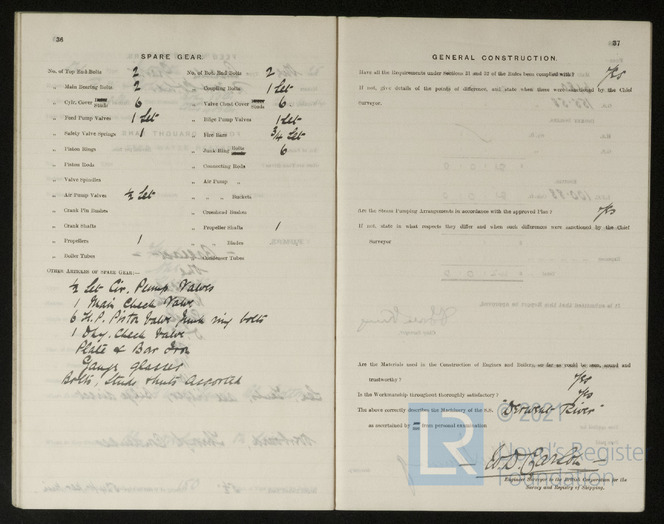 36
SPARE GEAR.
No. of Top End Bolts 2 No. of Bot. End Bolts 2
„ Main Bearing Bolts 2 „ Coupling Bolts 1 Set
„ Cylr. Cover Studs 6 „ Valve Chest Cover Studs 6
„ Feed Pump Valves 1 Set „ Bilge Pump Valves 1 Set
„ Safety Valve Springs 1 „ Fire Bars 3/4 Set
„ Piston Rings „ Junk Ring Bolts 6
„ Piston Rods „ Connecting Rods
„ Valve Spindles „ Air Pump „
„ Air Pump Valves ½ Set „ „ Buckets
„ Crank Pin Bushes „ Crosshead Bushes
„ Crank Shafts „ Propeller Shafts 1
„ Propellers 1 „ Blades
„ Boiler Tubes „ Condenser Tubes
OTHER ARTICLES OF SPARE GEAR:—
½ Set Cir. Pump Valves
1 Main Check Valve
6 H.P. Piston Valve Junk ring bolts
1 Dky. Check Valve
Plate & Bar Iron
Gauge glasses
Bolts, Studs & nuts assorted
37
GENERAL CONSTRUCTION.
Have all the Requirements under sections 31 and 32 of the Rules been complied with? Yes
If not, give details of the points of difference, and state when these were sanctioned by the Chief
Surveyor.
Are the Steam Pumping Arrangements in accordance with the approved Plan? Yes
If not state in what respects they differ and when such difference were sanctioned by the Chief
Surveyor
Are the Materials used in the Construction of Engines and Boilers, so far as could be seen, sound and
trustworthy? Yes
Is the Workmanship throughout thoroughly satisfactory? Yes
The above correctly describes the Machinery of the S.S. "Derwent River"
as ascertained by from personal examination
© 2021
LR
Lloyd's Register
Foundation
Engineer Surveyor to the British Corporation for the
Survey and Registry of Shipping.